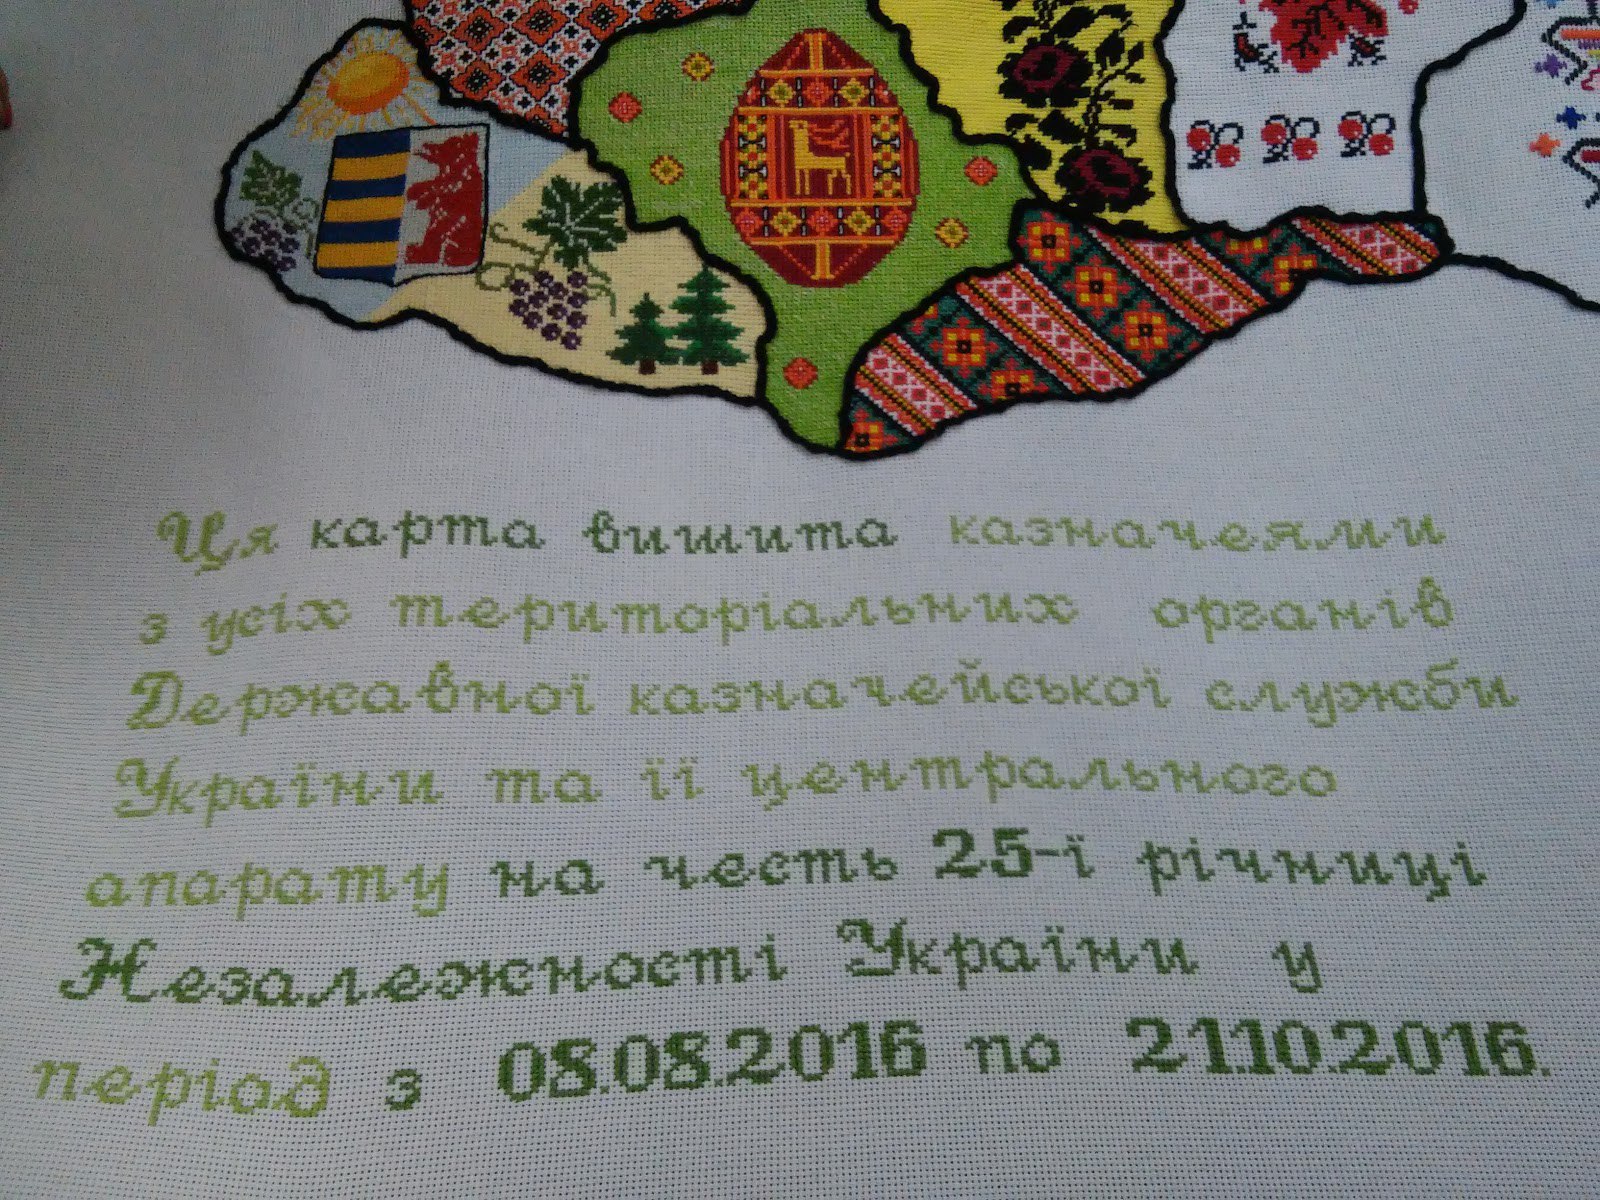 Ця карта вишита казначеями
з усіх територіальних органів
Державної казначейської служби
України та її центрального
апарату на честь 25-ї річниці
Незалежності України у
період з 08.08.2016 по 21.10.2016.